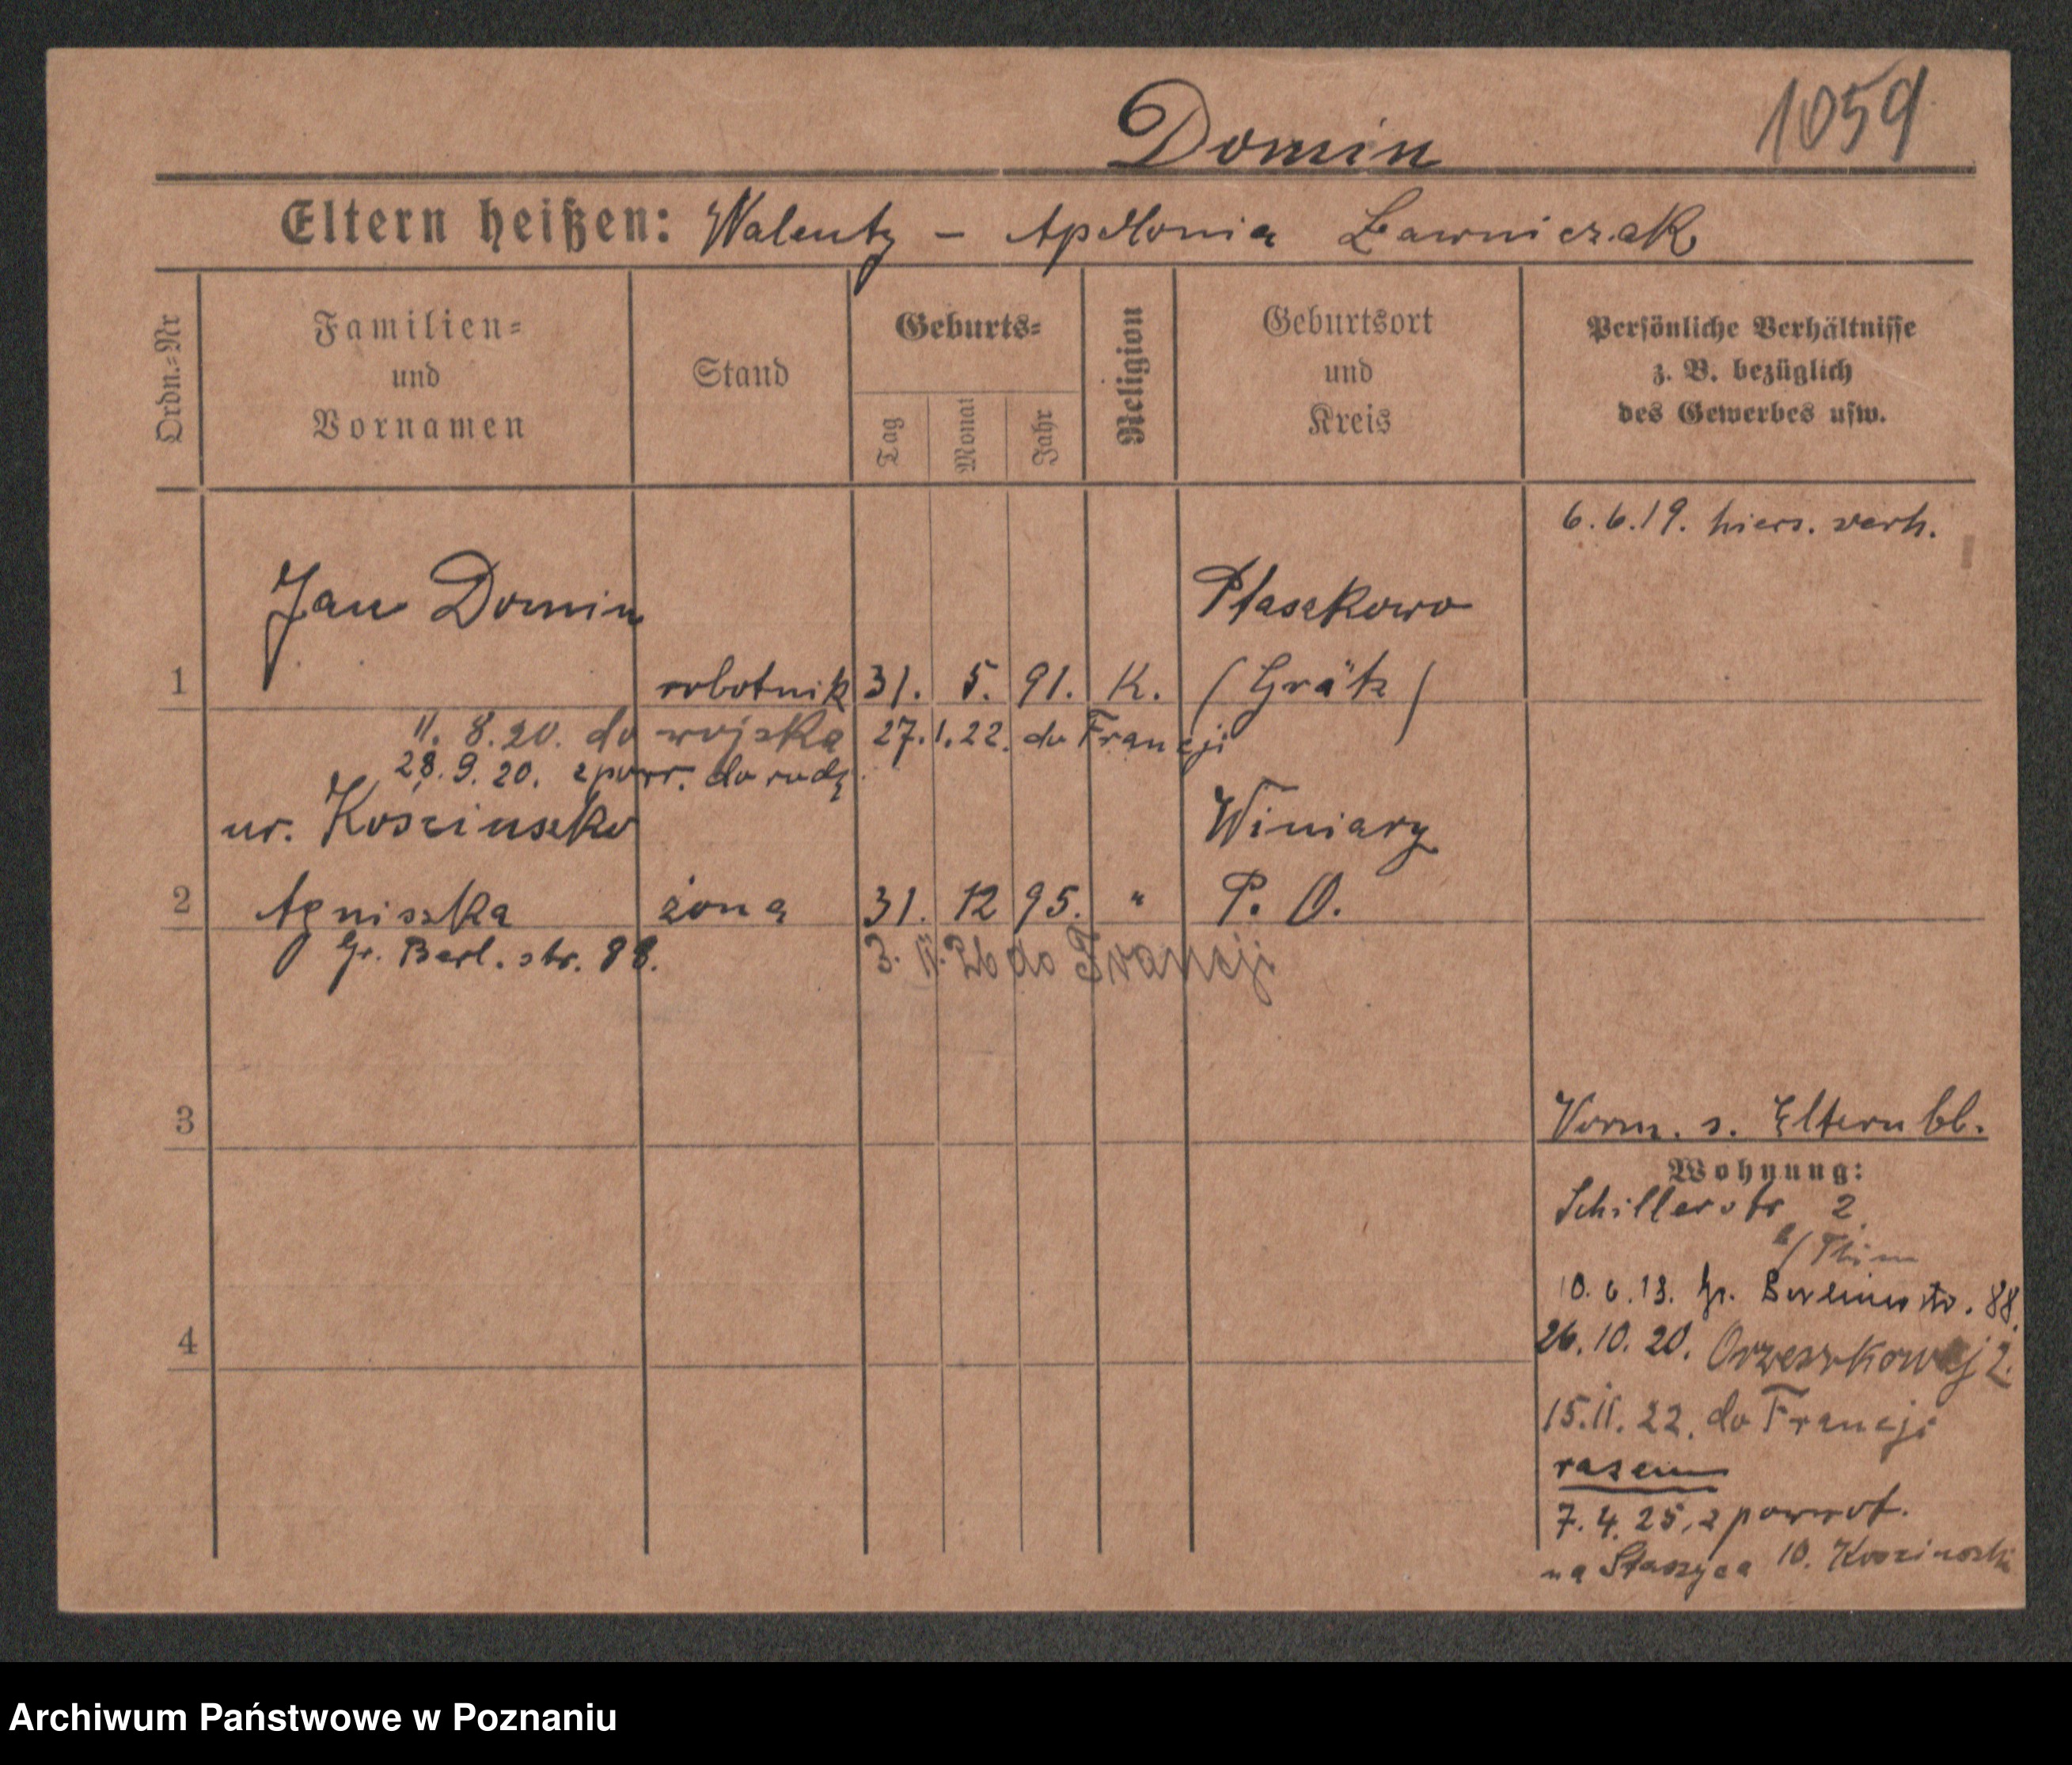 1059
Domin
Eltern heißen: Walenty - Apolonia Ławniczak
Ordn.=Nr
Familien=
und
Vornamen
Stand
Geburts=
Tag
Monat
Jahr
Religion
Geburtsort
und
Kreis
Persönliche Verhältnisse
z. B. bezüglich
des Gewerbes usw.
6.6.19. hiers. verh.
Jan Domin
Ptaszkowo
1 robotnik 31. 5. 91. K. (Grätz)
11. 8.20. do wojska 27.1.22. do Francji
28.9.20. z powr. do rodz.
ur. Kosciuszko Winiary
2 Agniszka żona 31. 12 95. " P. O.
Gr. Berl. str. 88. 3. II. 26 do Francji
3
Vorm. s. Elternbl.
Wohnung:
Schillerstr 2
b/Thim
10.6.19. Gr. Berlinerstr. 88.
4
26.10.20. Orzeszkowej 2.
15.II.22. do Francji
razem
7.4.25. z powrot.
na Staszyca 10. Kosciuszko
Archiwum Państwowe w Poznaniu